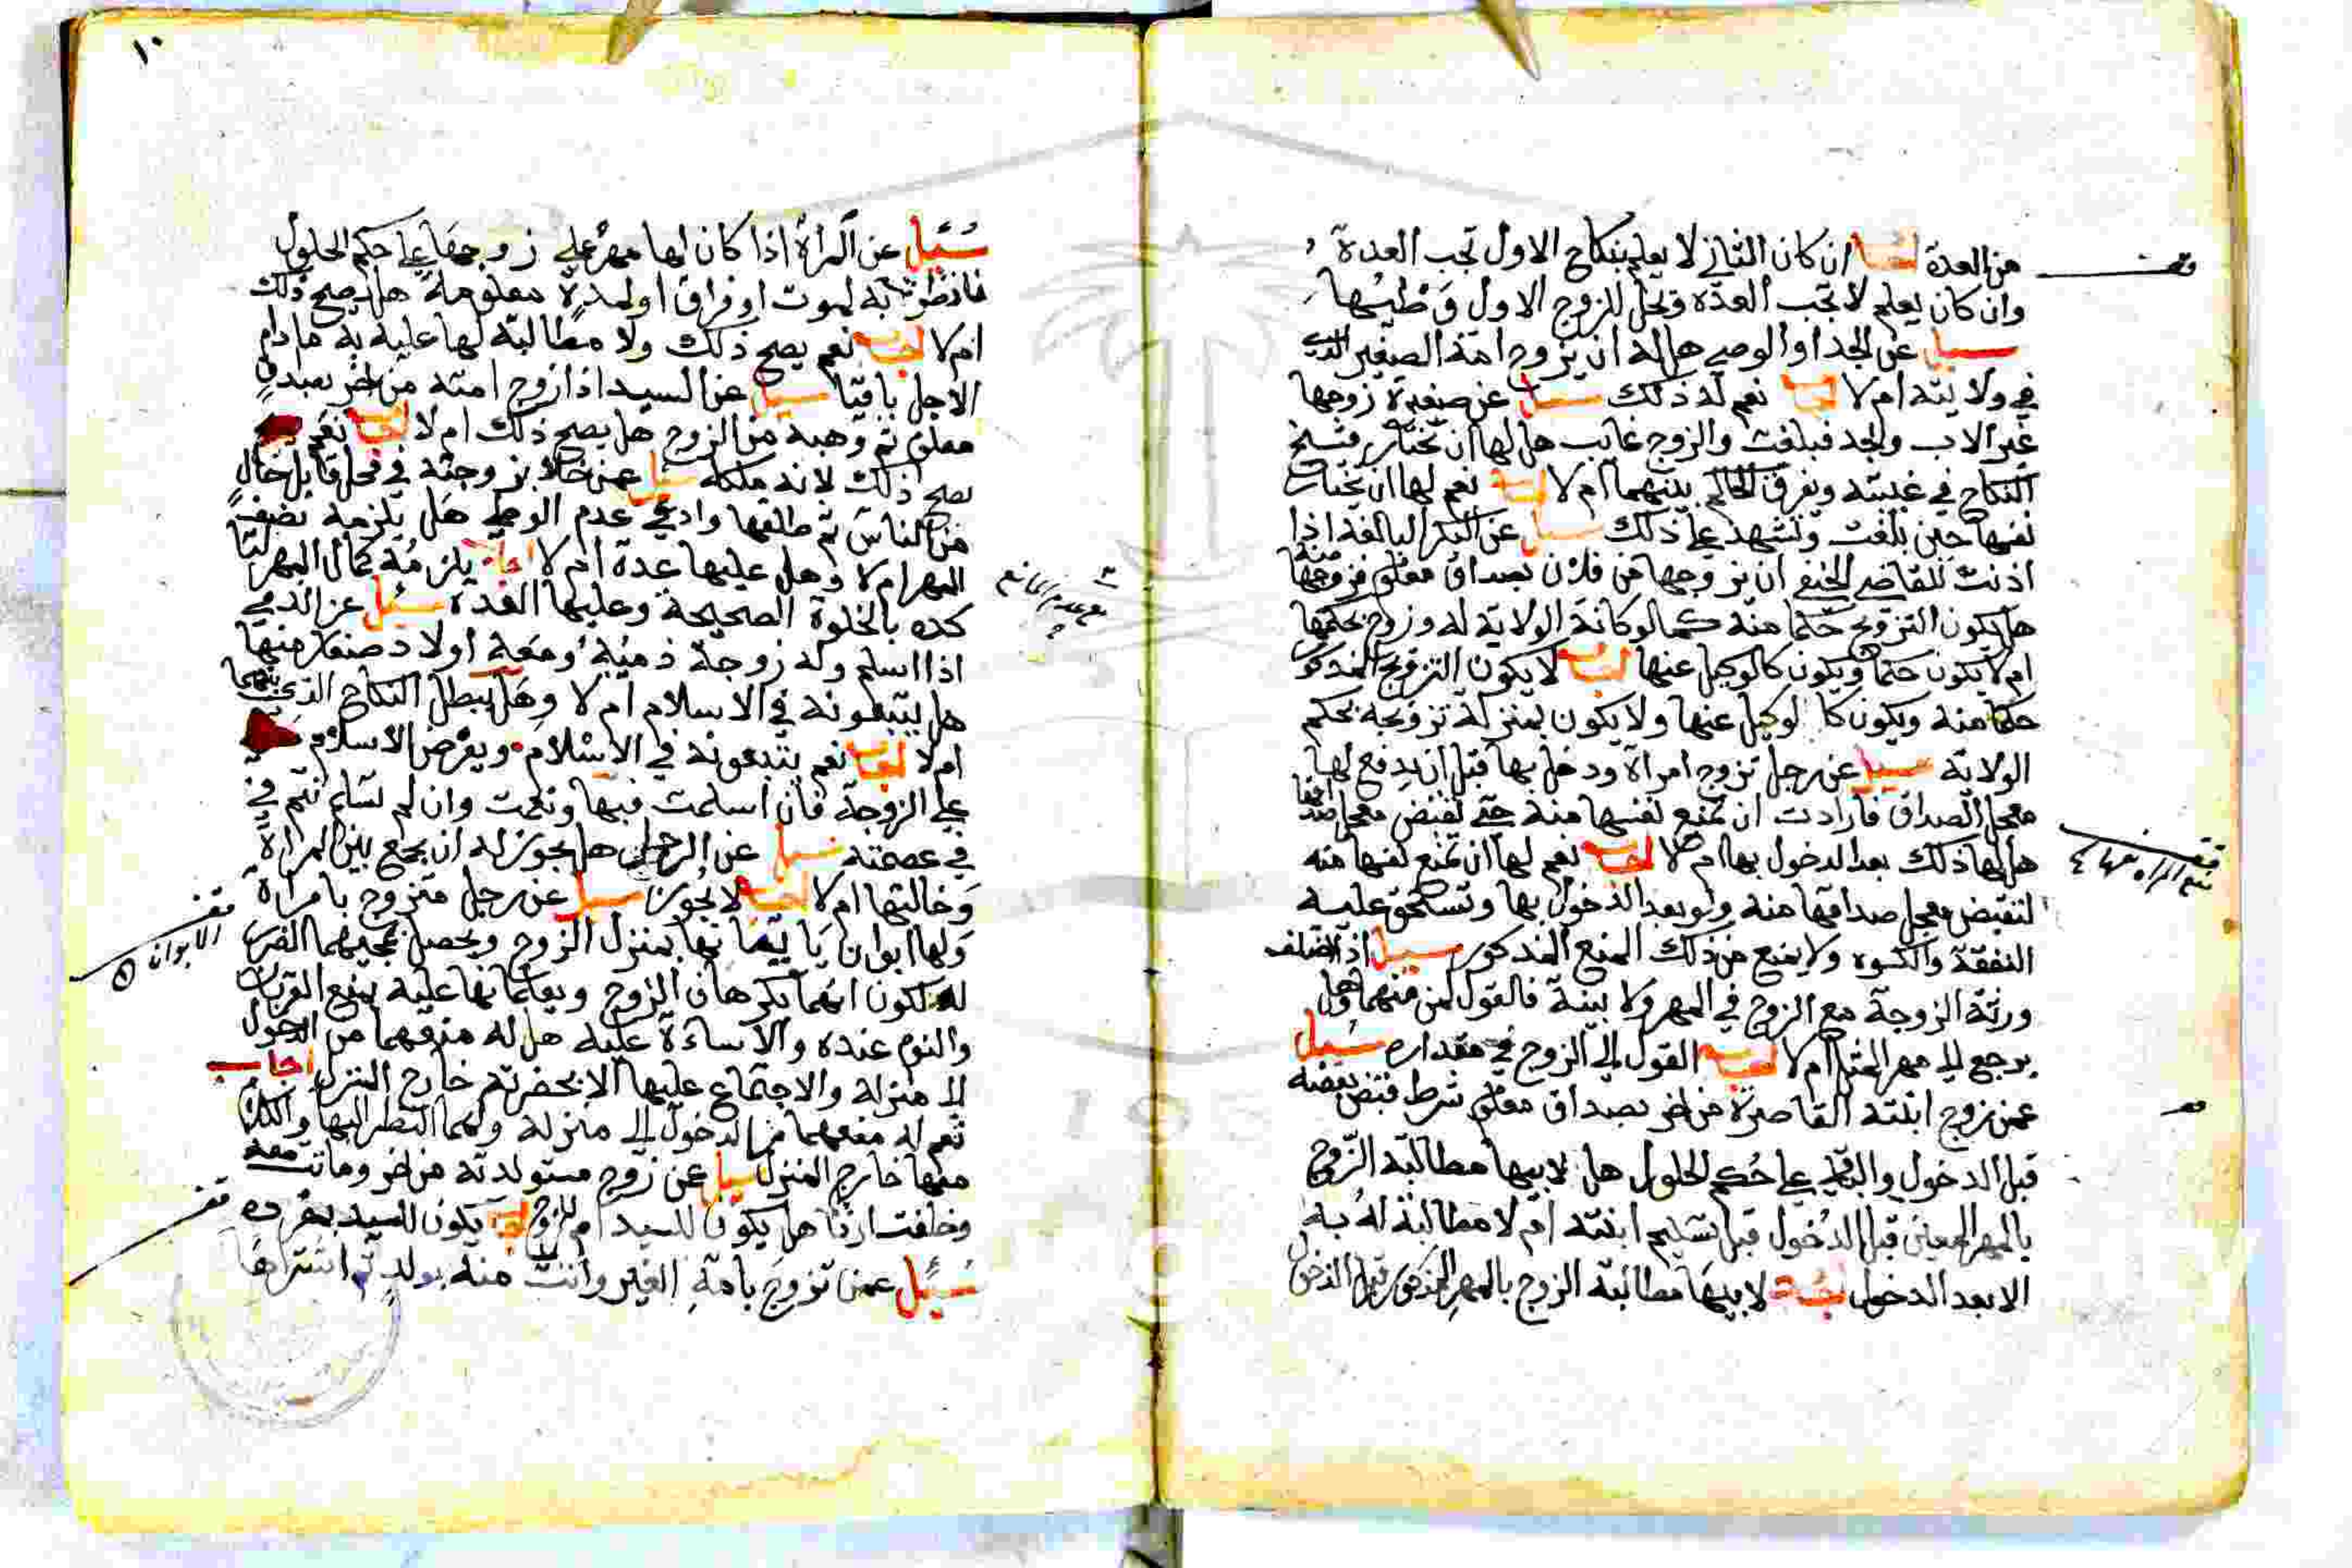 من العدة اجاب ان كان الثاني لا يعلم بنكاح الاول تجب العدة
وان كان يعلم لا تجب العدة وتحل للزوج الاول وطئها
سيل عن الجد او الوصي هل له ان يزوج امة الصغير الذي
في ولايته ام لا اجاب نعم له ذلك سيل عن صغيرة زوجها
غير الاب والجد فبلغت والزوج غايب هل لها ان تختار فسخ
النكاح في غيبته ويفرق الحاكم بينهما ام لا اجاب نعم لها ان تختار
نفسها حين بلغت وتشهد على ذلك سيل عن البكر البالغة اذا
اذنت للقاضي الحنفي ان يزوجها من فلان بصداق معلوم فزوجها منه
هل يكون التزويج حكما منه كما لو كانة الولاية له وزوج بحكمها
ام لا يكون حكما ويكون كالوكيل عنها اجاب لا يكون التزويج المذكور
حكما منه ويكون كالوكيل عنها ولا يكون بمنزلة تزويجه بحكم
الولاية سيل عن رجل تزوج امراة ودخل بها قبل ان يدفع لها
معجل الصداق فارادت ان تمنع نفسها منه حتى تقبض معجل صداقها
هل لها ذلك بعد الدخول بها ام لا اجاب نعم لها ان تمنع نفسها منه
لتقبض معجل صداقها منه ولو بعد الدخول بها وتستحق عليه
النفقة والكسوه ولا يمنع من ذلك المنع المذكور سيل اذا اختلف
ورثة الزوجة مع الزوج في المهر ولا بينة فالقول لمن منهما وهل
يرجع الى مهر المثل ام لا اجاب القول الى الزوج في مقداره سئيل
عمن زوج ابنته القاصرة من اخر بصداق معلوم شرط قبض بعضه
قبل الدخول والباقي على حكم الحلول هل لابيها مطالبة الزوج
بالمهر المعين قبل الدخول قبل تسليم ابنته ام لا مطالبة له به
الا بعد الدخول اجاب لابيها مطالبة الزوج بالمهر المذكور قبل الدخول
١٠
سئيل عن المراة اذا كان لها مهر على زوجها على حكم الحلول
فانظرته به لموت او فراق او لمدة معلومة هل يصح ذلك
ام لا اجاب نعم يصح ذلك ولا مطالبة لها عليه به ما دام
الاجل باقيا سيل عن السيد اذا زوج امته من اخر بصداق
معلوم ثم وهبه من الزوج هل يصح ذلك ام لا اجاب نعم
يصح ذلك لانه ملكه سيل عمن خلا بزوجته في محل قابل خال
من الناس ثم طلقها وادعى عدم الوطي هل يلزمه نصف
المهر ام لا وهل عليها عدة ام لا اجاب يلزمه كمال المهر لتا
كده بالخلوة الصحيحة وعليها العدة سئيل عن الذمي
اذا اسلم وله زوجة ذمية ومعه اولاد صغار منها
هل يتبعونه في الاسلام ام لا وهل يبطل النكاح الذي بينهما
ام لا اجاب نعم يتبعونه في الاسلام ويعرض الاسلام
على الزوجة فان اسلمت فبها ونعمت وان لم تسلم تتم في
في عصمته سيل عن الرجل هل يجوز له ان يجمع بين المراة
وخالتها ام لا اجاب لا يجوز سيل عن رجل متزوج بامراة
ولها ابوان ياتيانها بمنزل الزوج ويحصل بمجيهما الضرر
له لكون انهما يكرهان الزوج ويعلمانها عليه بمنع القربان
والنوم عنده والاساءة عليه هل له منعهما من الدخول
الى منزله والاجتماع عليها الا بحضرته خارج المنزل اجاب
نعم له منعهما من الدخول الى منزله ولهما النظر اليها والكلام
معها خارج المنزل سيل عن زوج مستولدته من اخر وماتت معه
وخلفت ارثا هل يكون للسيد ام للزوج اجاب يكون للسيد بمفرده
سئيل عمن تزوج بامة الغير واتت منه بولد ثم اشتراها
قف
الابوان
قف